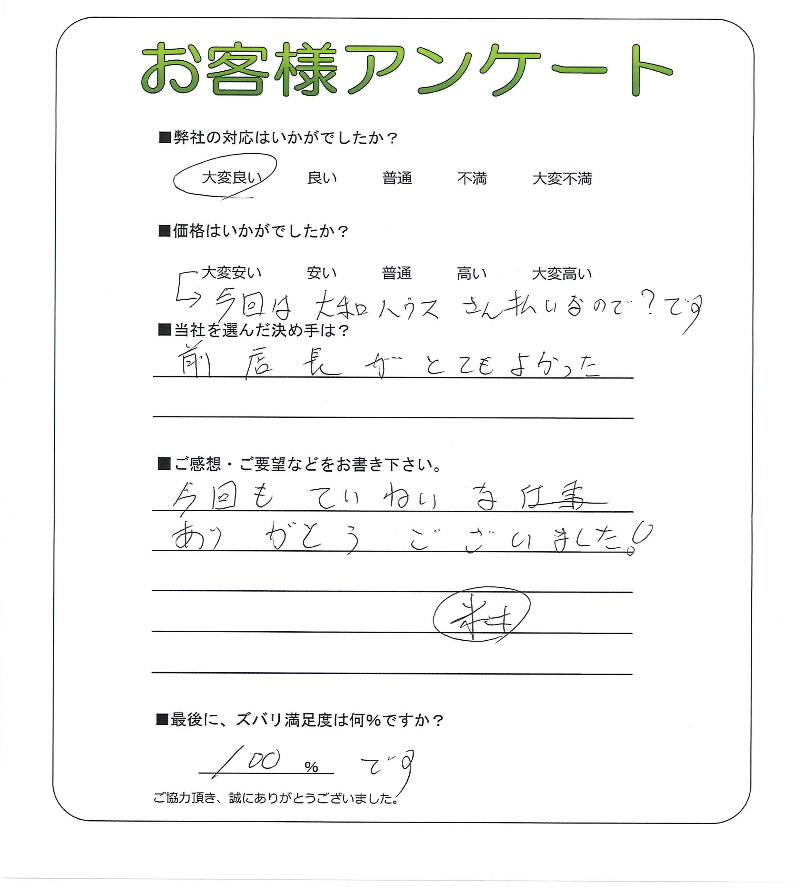 お客様アンケート
■弊社の対応はいかがでしたか？
大変良い 良い 普通 不満 大変不満
■価格はいかがでしたか？
大変安い 安い 普通 高い 大変高い
今回は 大和ハウス さん払いなので？です
■当社を選んだ決め手は？
前店長がとてもよかった
■ご感想・ご要望などをお書き下さい。
今回もていねいな仕事
ありがとうございました!
■最後に、ズバリ満足度は何％ですか？
100 ％ です
ご協力頂き、誠にありがとうございました。